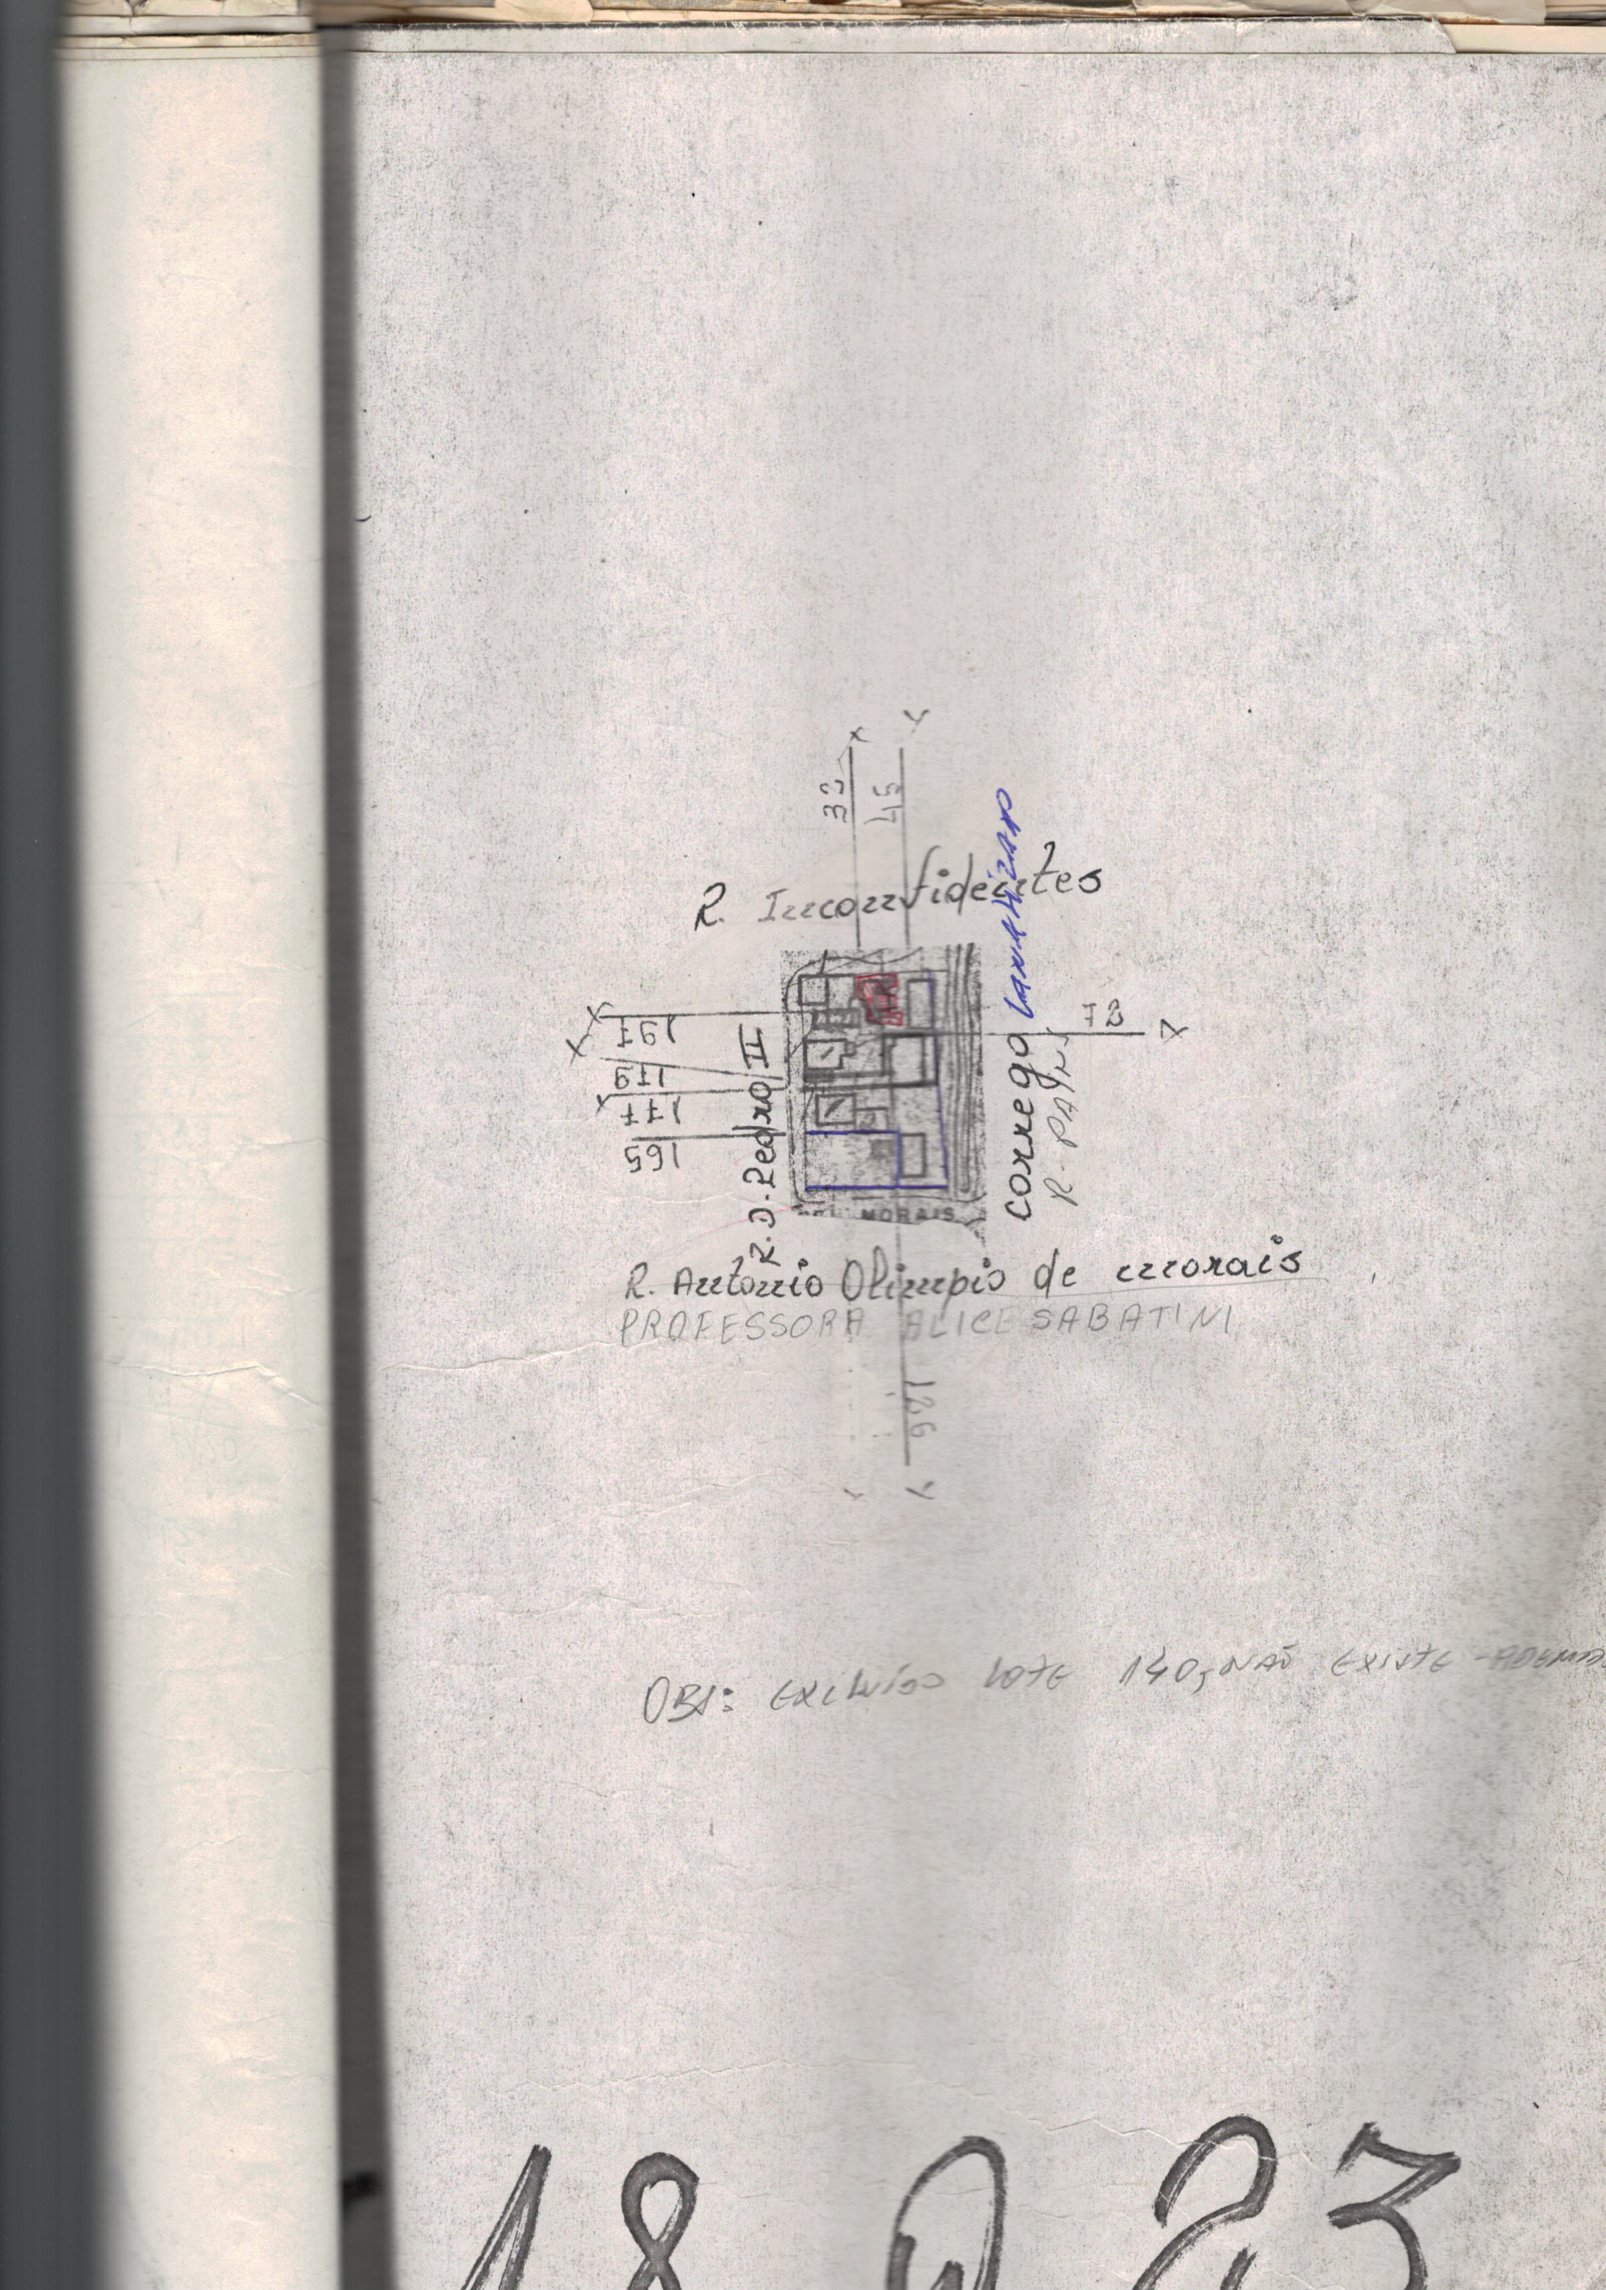 32
45
R. Inconfidentes
canalizado
197
179
177
165
R. D. Pedro II
corrego
72
MORAIS
R. Antonio Olimpio de morais
PROFESSORA ALICE SABATINI
126
OBS: EXCLUÍDO LOTE 140, NÃO EXISTE
18 Q 23